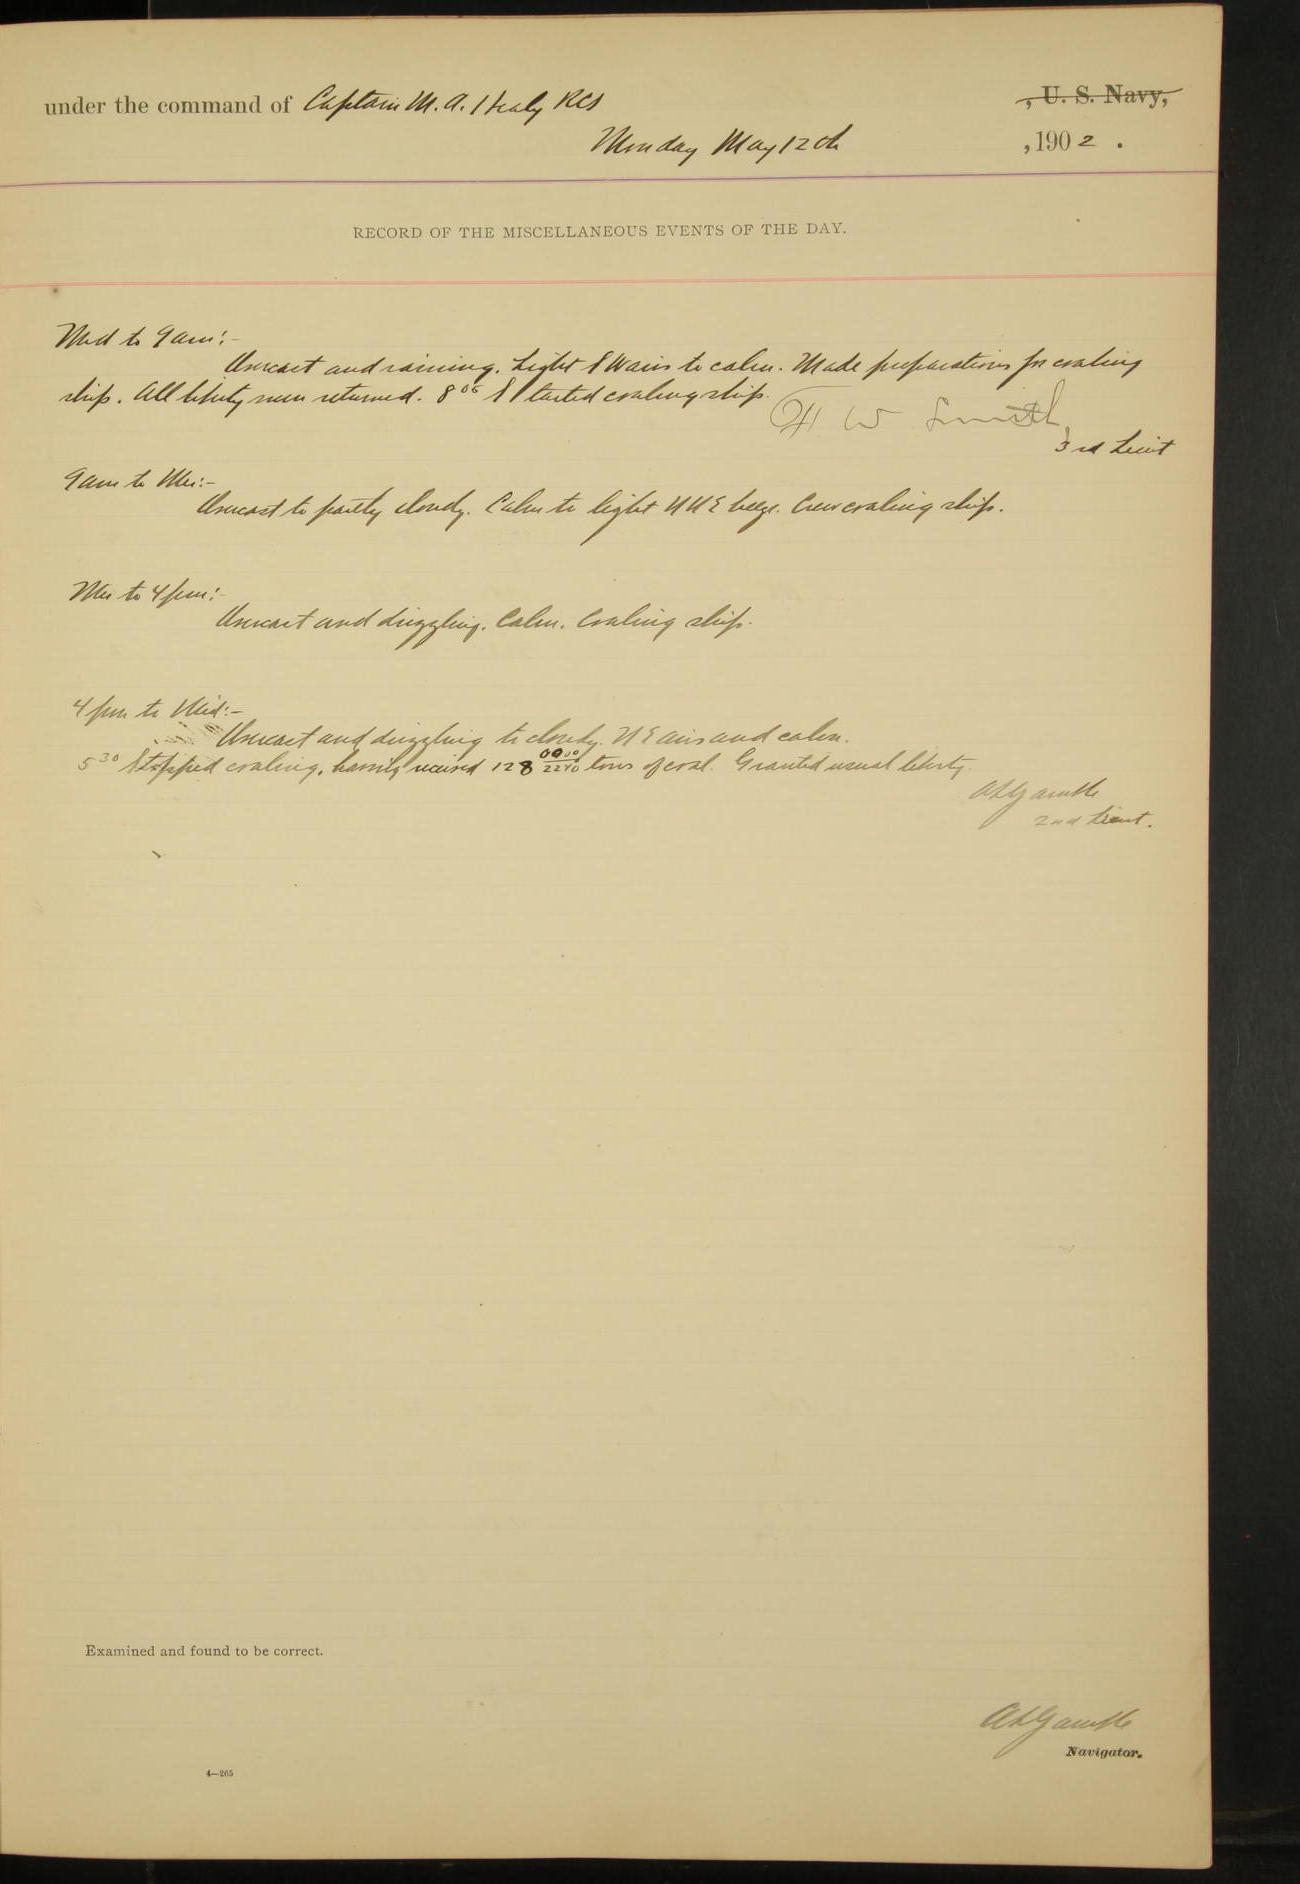 under the command of Captain M. A. Healy RCS , U. S. Navy,
Monday May 12th , 1902 .
RECORD OF THE MISCELLANEOUS EVENTS OF THE DAY.
Mid to 9 am:-
Overcast and raining. Light S W airs to calm. Made preparations for coaling
ship. All liberty men returned. 8 05 Started coaling ship.
W Smith
3rd Lieut
9 am to Mer:-
Overcast to partly cloudy. Calm to light NNE breeze. Crew coaling ship.
Mer to 4 pm:-
Overcast and drizzling. Calm. Coaling ship.
4 pm to Mid:-
Overcast and drizzling to cloudy. N E airs and calm.
5 30 Stopped coaling, having received 128 0000/2240 tons of coal. Granted usual liberty.
A L Gamble
2nd Lieut.
Examined and found to be correct.
A L Gamble
Navigator.
4—265